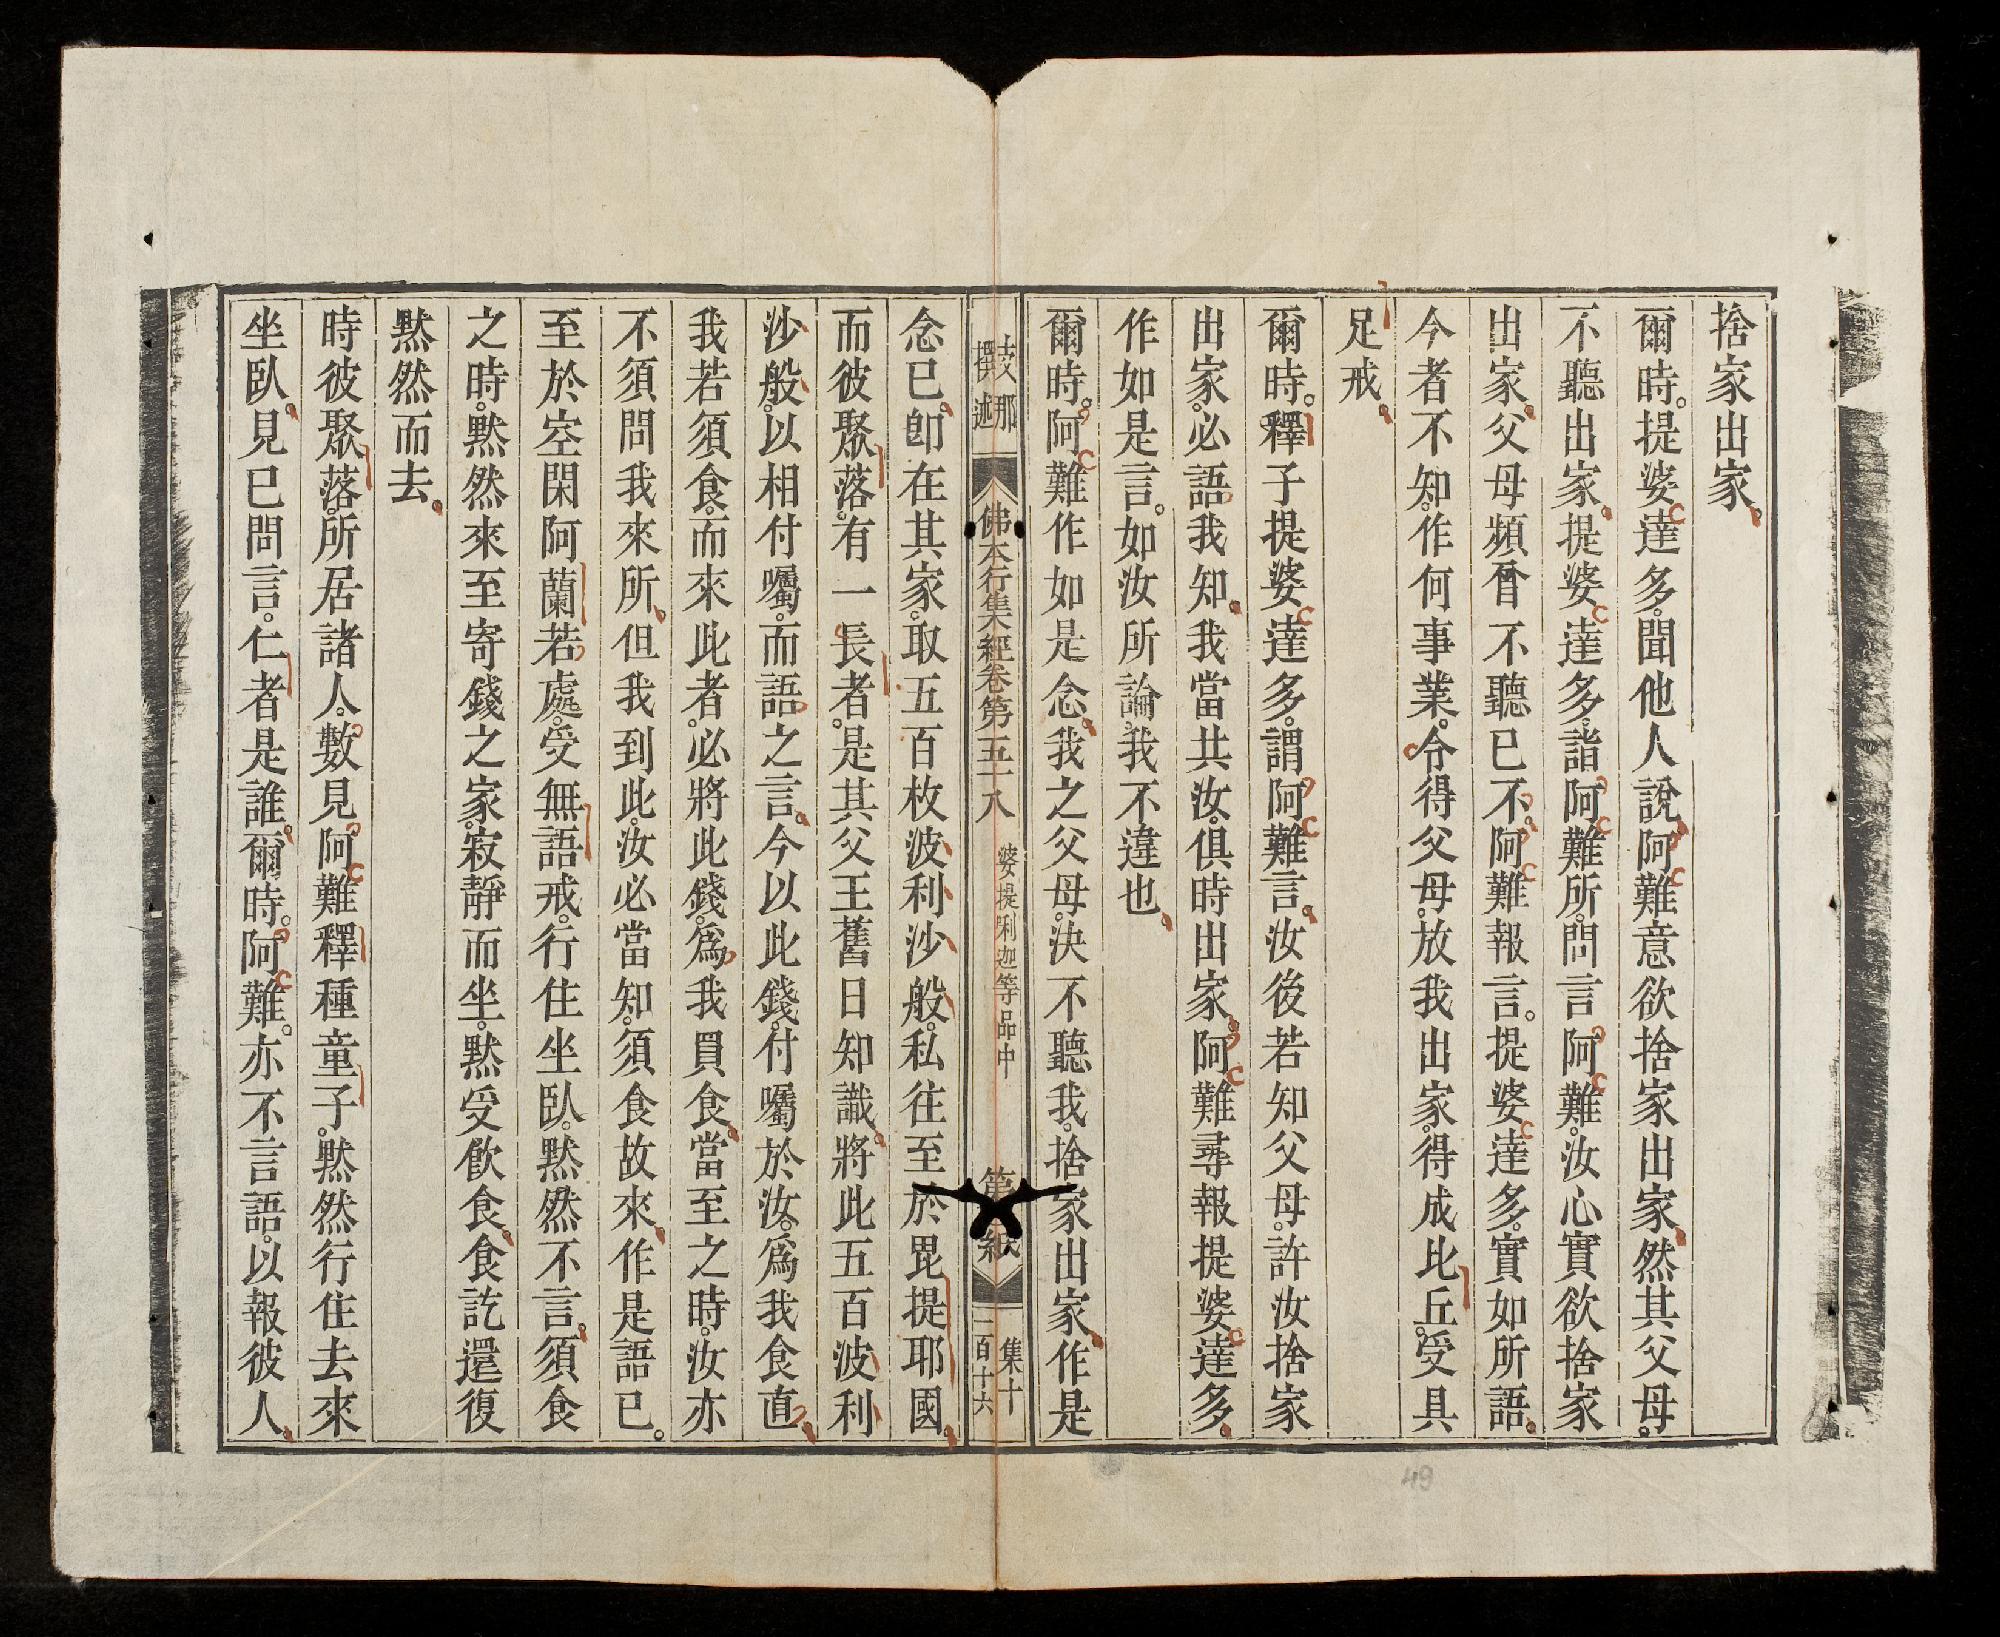 捨家出家。
爾時。提婆達多。聞他人說。阿難意欲捨家出家。然其父母。
不聽出家。提婆達多。詣阿難所。問言阿難。汝心實欲捨家
出家。父母頻㑹不聽已不。阿難報言。提婆達多。實如所語。
今者不知。作何事業。令得父母。放我出家。得成比丘。受具
足戒。
爾時。釋子提婆達多。謂阿難言。汝後若知父母。許汝捨家
出家。必語我知。我當共汝。俱時出家。阿難尋報提婆達多。
作如是言。如汝所論。我不違也。
爾時。阿難作如是念。我之父母。決不聽我。捨家出家。作是
支那
撰述
佛本行集經卷第五十八
婆提唎迦等品中
第 紙
集十
一百十六
念已。卽在其家。取五百枚波利沙般。私往至於毘提耶國。
而彼聚落。有一長者。是其父王舊日知識。將此五百波利
沙般。以相付囑。而語之言。今以此錢。付囑於汝。爲我食直。
我若須食。而來此者。必將此錢。爲我買食。當至之時。汝亦
不須問我來所。但我到此。汝必當知。須食故來。作是語已。
至於空閑阿蘭若處。受無語戒。行住坐臥。黙然不言。須食
之時。黙然來至寄錢之家。寂靜而坐。黙受飮食。食訖還復
黙然而去。
時彼聚落。所居諸人。數見阿難釋種童子。黙然行住去來
坐臥。見已問言。仁者是誰。爾時。阿難。亦不言語。以報彼人。
49